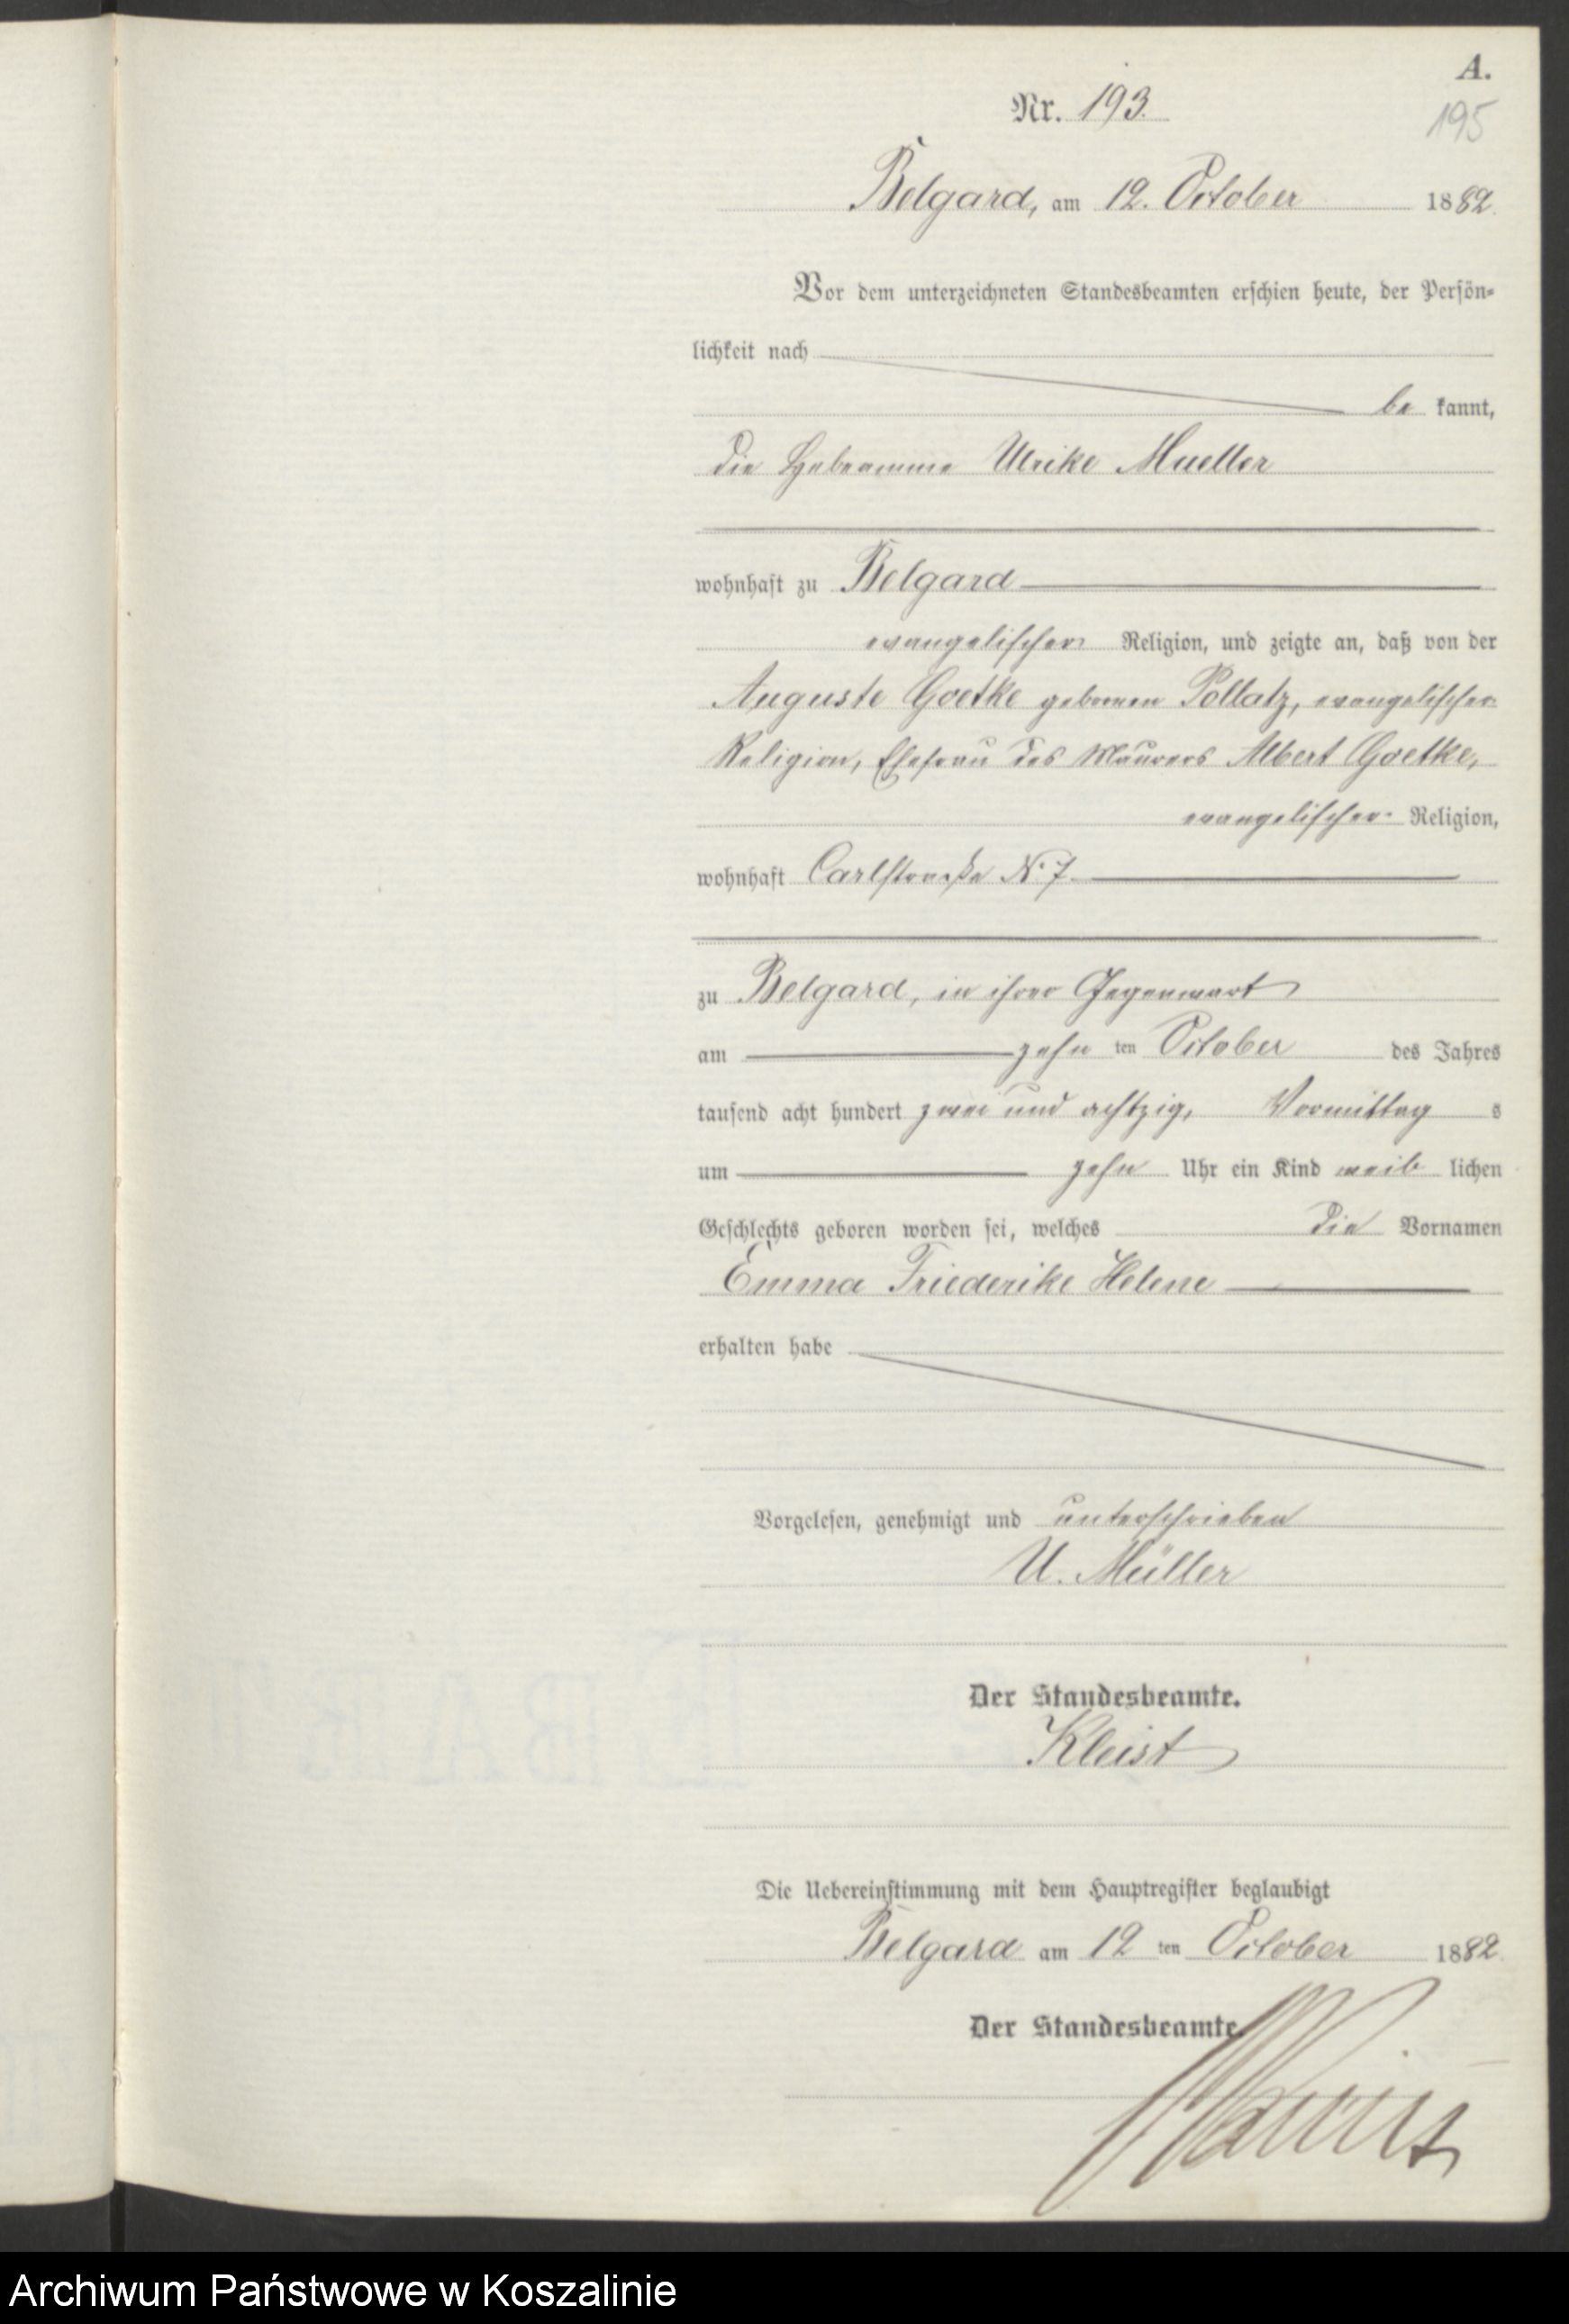 A.
Nr. 193.
195
Belgard, am 12. October 1882.
Vor dem unterzeichneten Standesbeamten erschien heute, der Persön-
lichkeit nach
be kannt,
die Hebamme Ulrike Mueller
wohnhaft zu Belgard
evangelischer Religion, und zeigte an, daß von der
Auguste Goetke geborenen Pollatz, evangelischer
Religion, Ehefrau des Maurers Albert Goetke,
evangelischer Religion,
wohnhaft Carlstraße No 7.
zu Belgard, in ihrer Gegenwart
am zehn ten October des Jahres
tausend acht hundert zwei und achtzig, Vormittag s
um zehn Uhr ein Kind weib lichen
Geschlechts geboren worden sei, welches die Vornamen
Emma Friederike Helene
erhalten habe
Vorgelesen, genehmigt und unterschrieben
U. Müller
Der Standesbeamte.
Kleist
Die Uebereinstimmung mit dem Hauptregister beglaubigt
Belgard am 12 ten October 1882.
Der Standesbeamte.
Archiwum Państwowe w Koszalinie